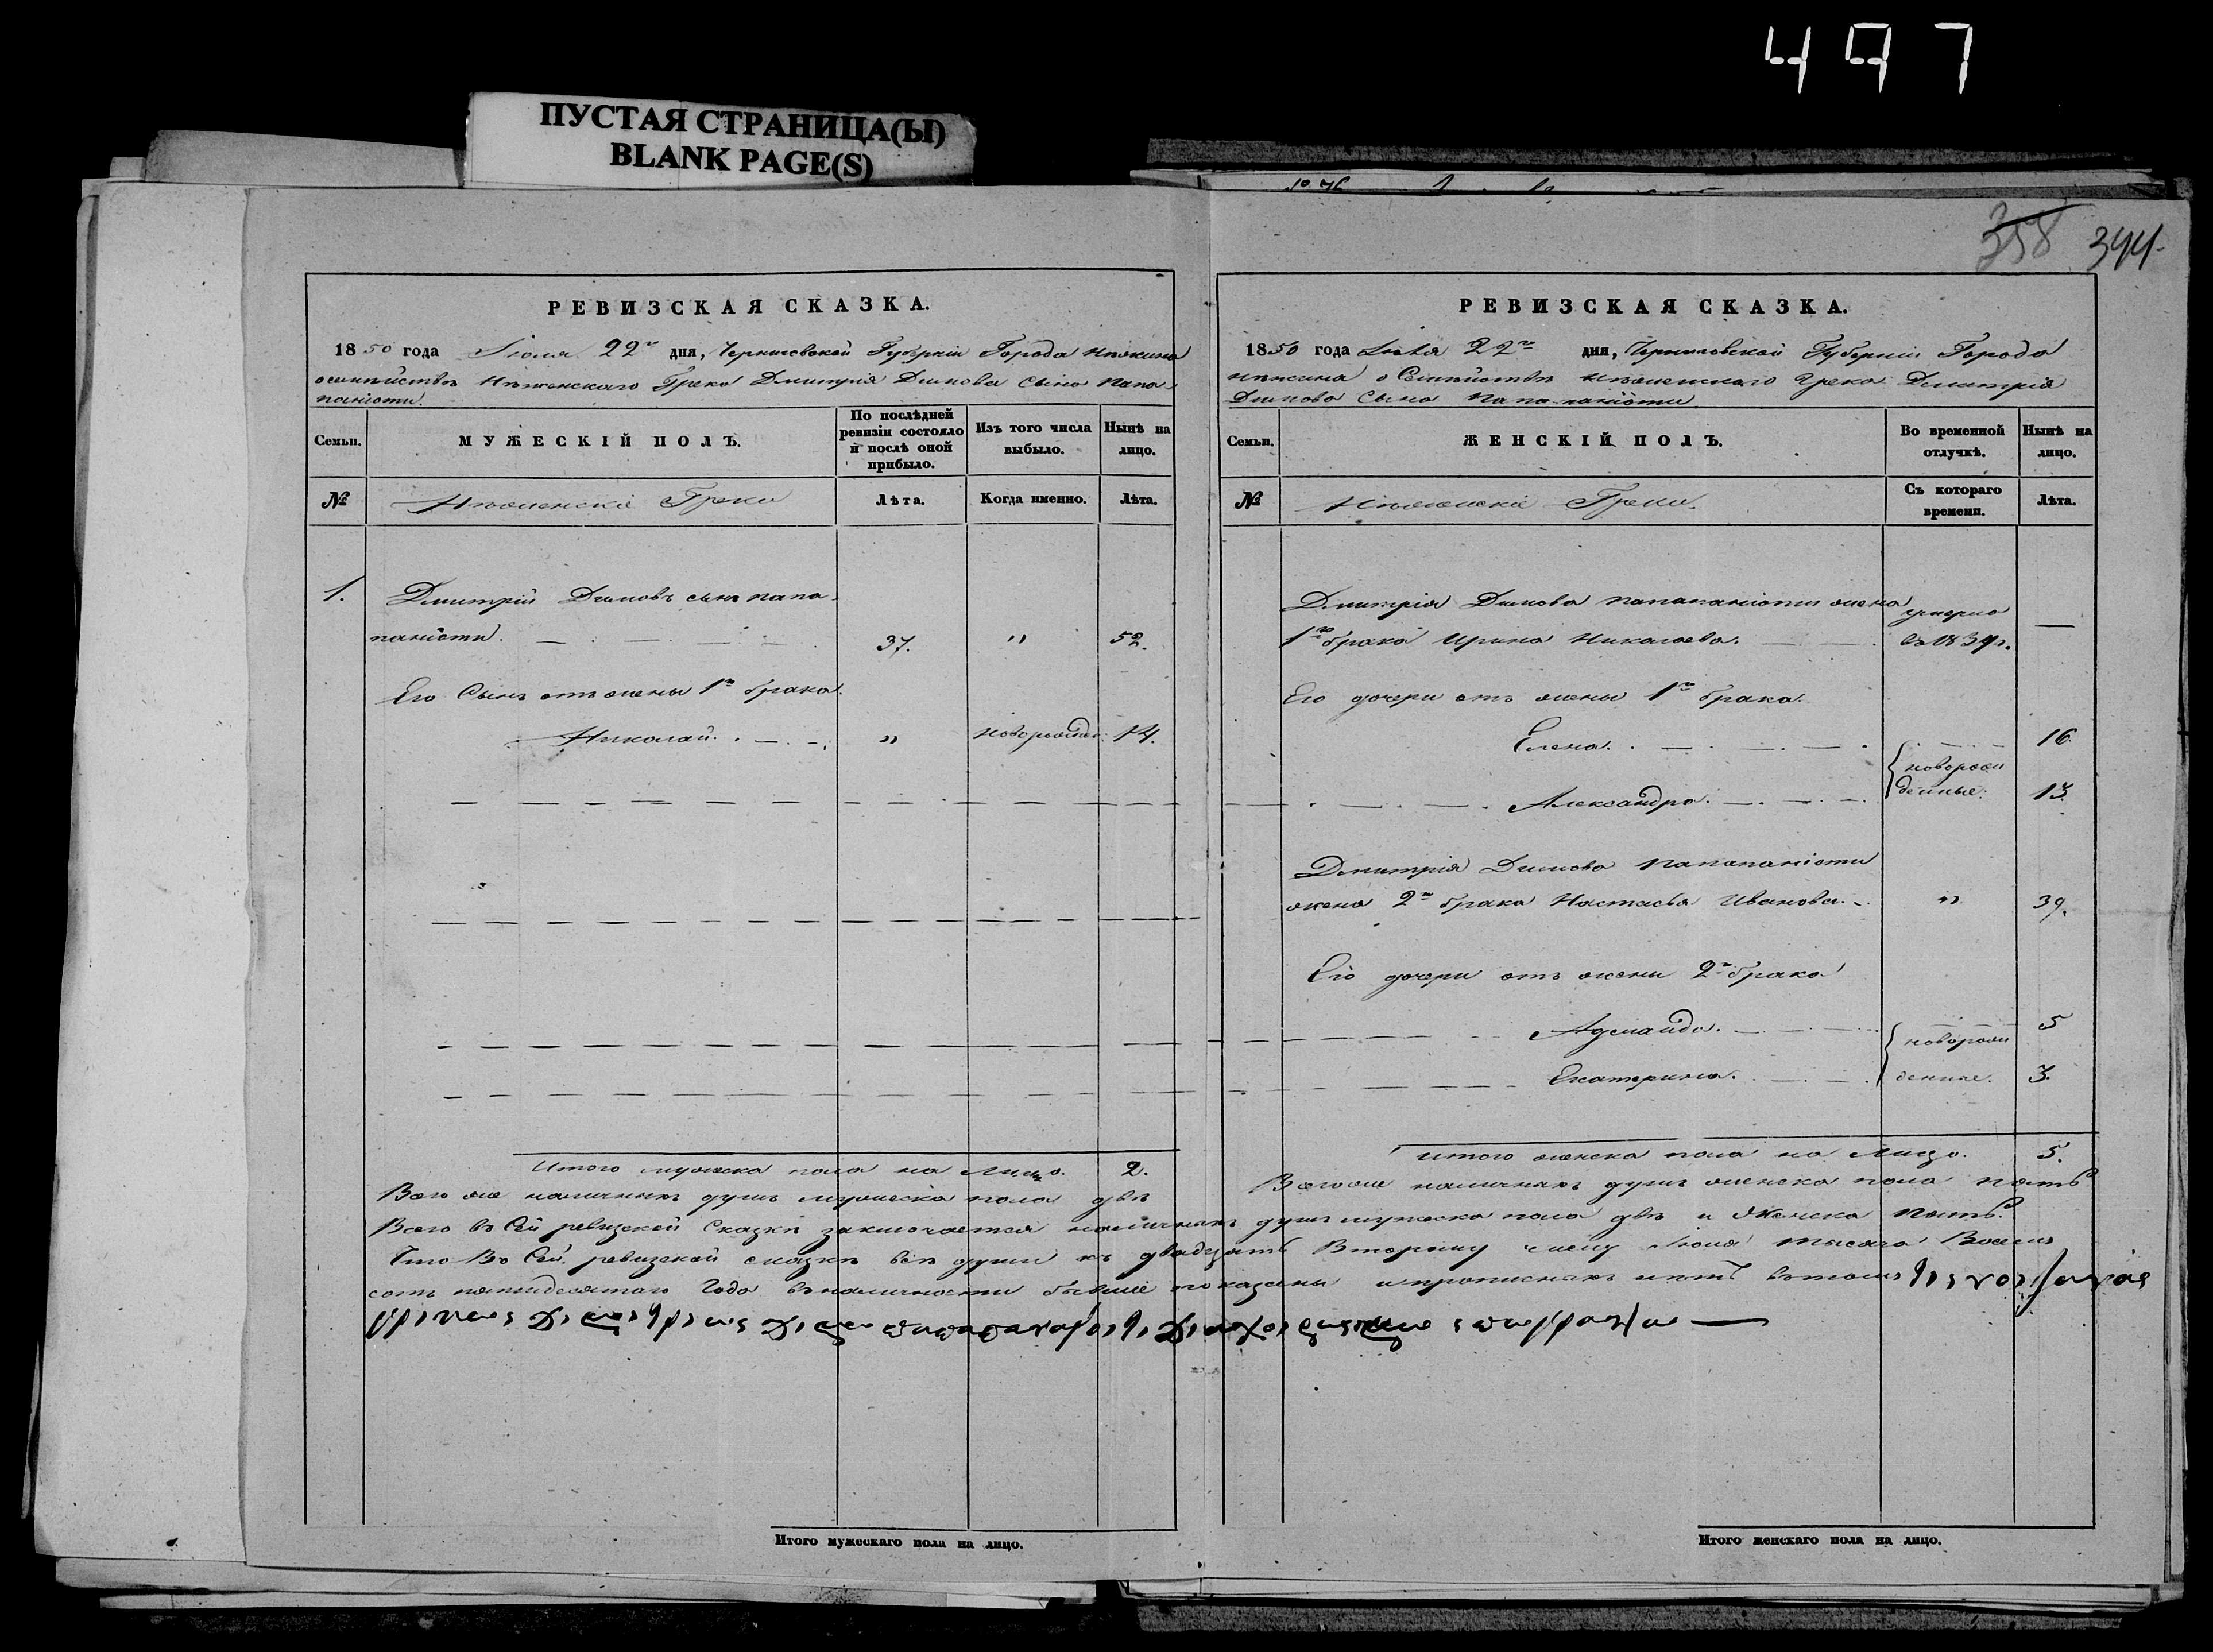 497
ПУСТАЯ СТРАНИЦА(Ы)
BLANK PAGE(S)
358 344.
РЕВИЗСКАЯ СКАЗКА.
1850 года Іюля 22го дня, Черниговской Губерніи Города Нѣжина
о семействѣ Нѣженскаго Грека Дмитрія Димова сына Папа
паніоти.
Семьи.
МУЖЕСКІЙ ПОЛЪ.
По послѣдней ревизіи состояло и послѣ оной прибыло.
Изъ того числа выбыло.
Нынѣ на лицо.
№
Нѣженскіе Греки
Лѣта.
Когда именно.
Лѣта.
1. Дмитрій Димовъ сынъ папа
паніоти. 37. " 52.
Его Сынъ отъ жены 1го брака.
Николай. " новорожден: 14.
Итого мужеска пола на Лицо. 2.
Всего же наличныхъ душъ мужеска пола двѣ
РЕВИЗСКАЯ СКАЗКА.
1850 года Іюля 22го дня, Черниговской Губерніи Города
Нѣжина о Семействѣ Нѣженскаго Грека Дмитрія
Димова Сына Папа-паніоти
Семьи.
ЖЕНСКІЙ ПОЛЪ.
Во временной отлучкѣ.
Нынѣ на лицо.
№
Нѣженскіе Греки.
Съ котораго времени.
Лѣта.
Дмитрія Димова Папапаніоти жена умерла
1го брака Ирина Николаева. въ 1839г. —
Его дочери отъ жены 1го брака.
Елена. 16.
новорож
Александра. денные. 13.
Дмитрія Димова Папапаніоти
жена 2го брака Настасья Иванова. " 39.
Его дочери отъ жены 2го брака
5
новорож
Екатерина. денные. 3.
итого женска пола на лицо. 5.
Всего же наличныхъ душъ женска пола пять
Всего въ Сей ревизской Сказкѣ заключается наличныхъ душъ мужеска пола двѣ и Женска пять.
Что Въ Сей ревизской сказкѣ всѣ души къ двадцать Второму числу Іюля тысяча Восемь
сотъ пятидесятаго Года въ наличности бывшіе показаны и прописныхъ нѣтъ въ томъ
Итого мужескаго пола на лицо.
Итого женскаго пола на лицо.